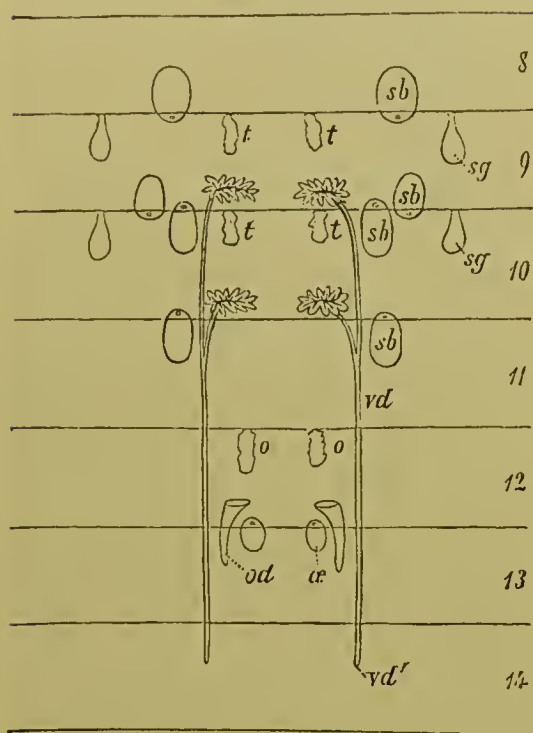 8
sb
t t
sg
9
sb
t t sb
sg
10
sb
11
vd
o o
12
od æ
13
vd'
14